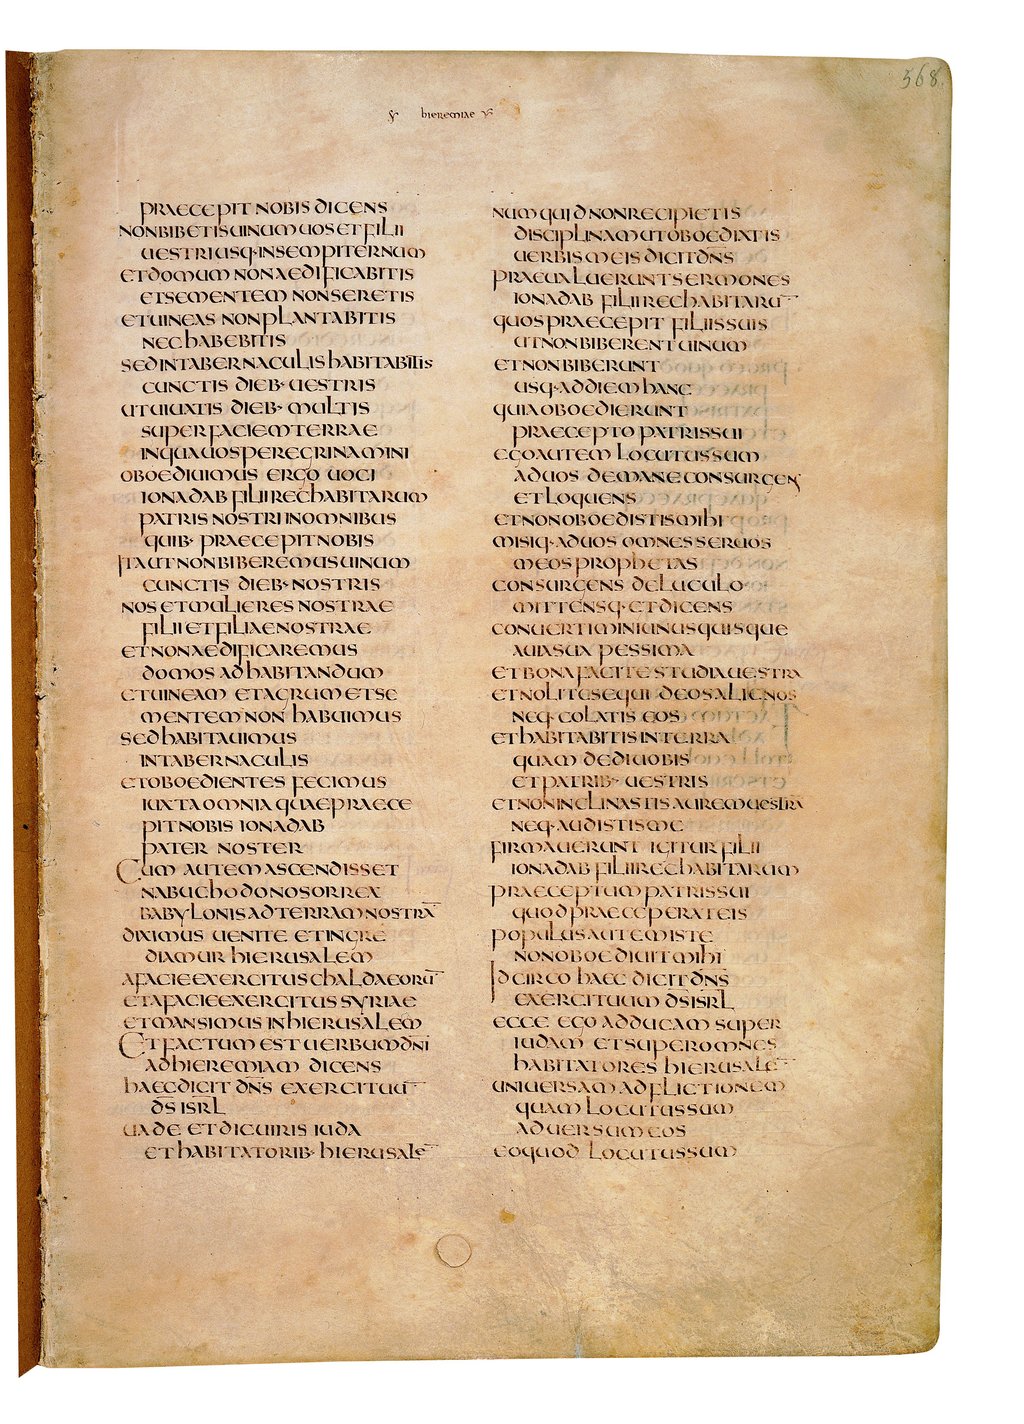 568.
hieremiae
praecepit nobis dicens
non bibetis uinum uos et filii
uestri usq· in sempiternum
et domum non aedificabitis
et sementem non seretis
et uineas non plantabitis
nec habebitis
sed in tabernaculis habitabitis
cunctis dieb· uestris
ut uiuatis dieb· multis
super faciem terrae
in qua uos peregrinamini
oboediuimus ergo uoci
ionadab filii rechabitarum
patris nostri in omnibus
quib· praecepit nobis
ita ut non biberemus uinum
cunctis dieb· nostris
nos et mulieres nostrae
filii et filiae nostrae
et non aedificaremus
domos ad habitandum
et uineam et agrum et se
mentem non habuimus
sed habitauimus
in tabernaculis
et oboedientes fecimus
iuxta omnia quae praece
pit nobis ionadab
pater noster
Cum autem ascendisset
nabuchodonosor rex
babylonis ad terram nostrā
diximus uenite et ingre
diamur hierusalem
a facie exercitus chaldaeorū
et a facie exercitus syriae
et mansimus in hierusalem
Et factum est uerbum dn̄i
ad hieremiam dicens
haec dicit dn̄s exercituū
ds̄ isrl̄
uade et dic uiris iuda
et habitatorib· hierusalē
numquid non recipietis
disciplinam ut oboediatis
uerbis meis dicit dn̄s
praeualuerunt sermones
ionadab filii rechabitarū
quos praecepit filiis suis
ut non biberent uinum
et non biberunt
usq· ad diem hanc
quia oboedierunt
praecepto patris sui
ego autem locutus sum
ad uos de mane consurgens
et loquens
et non oboedistis mihi
misiq· ad uos omnes seruos
meos prophetas
consurgens deluculo
mittensq· et dicens
conuertimini unusquisque
a uia sua pessima
et bona facite studia uestra
et nolite sequi deos alienos
neq· colatis eos
et habitabitis in terra
quam dedi uobis
et patrib· uestris
et non inclinastis aurem uestrā
neq· audistis me
firmauerunt igitur filii
ionadab filii rechabitarum
praeceptum patris sui
quod praeceperat eis
populus autem iste
non oboediuit mihi
Idcirco haec dicit dn̄s
exercituum ds̄ isrl̄
ecce ego adducam super
iudam et super omnes
habitatores hierusalē
uniuersam adflictionem
quam locutus sum
aduersum eos
eo quod locutus sum